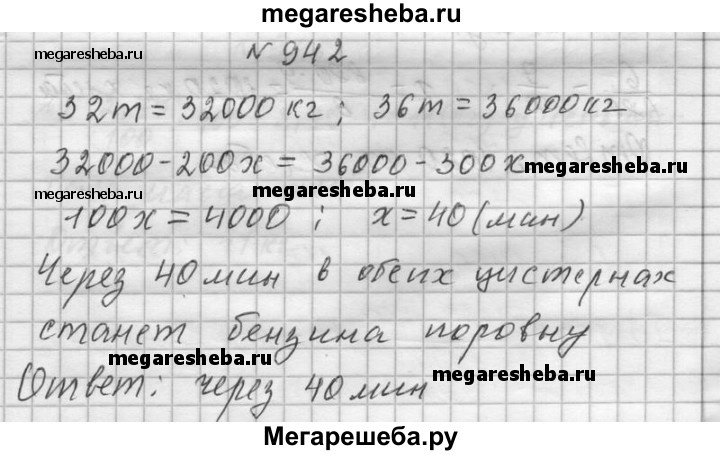 megaresheba.ru
megaresheba.ru № 942 megaresheba.ru
32т = 32000 кг; 36т = 36000кг
32000-200х = 36000-300х megaresheba.ru
megaresheba.ru megaresheba.ru megaresheba.ru
100х = 4000; х=40 (мин)
Через 40 мин в обеих цистернах
станет бензина поровну
megaresheba.ru megaresheba.ru
Ответ: через 40 мин
Мегарешеба.ру